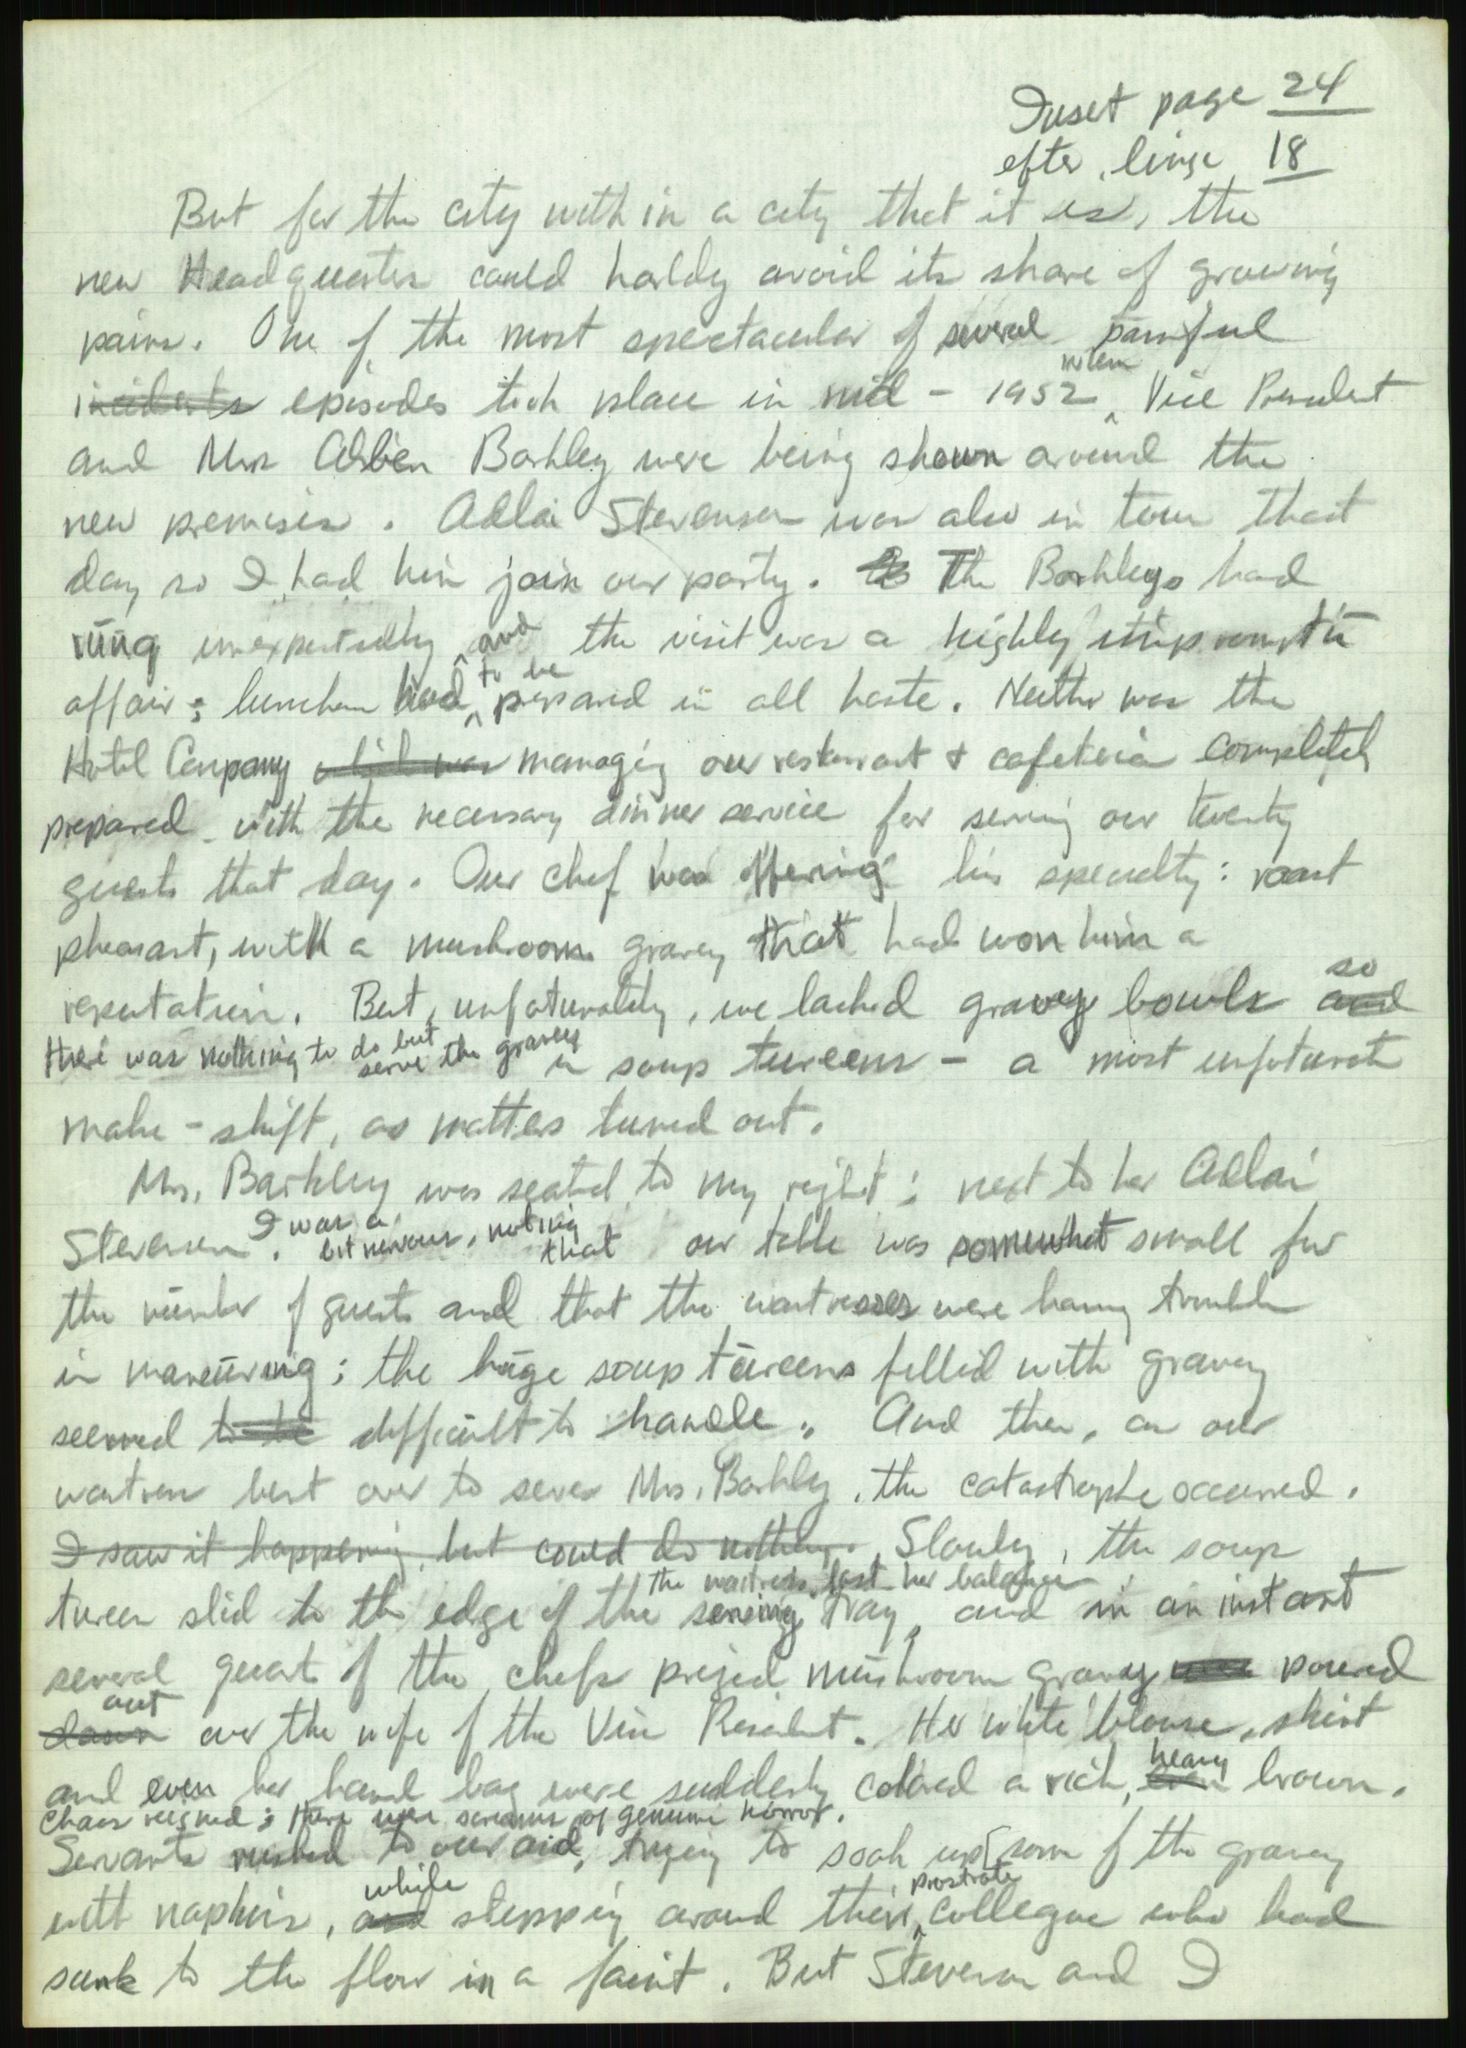 Inset page 24
after line 18
But for the city within a city that it is, the
new Headquarters could hardly avoid its share of growing
pains. One of the most spectacular of several painful
incidents episodes took place in mid-1952 when Vice President
and Mrs Alben Barkley were being shown around the
new premises. Adlai Stevenson was also in town that
day so I had him join our party. As The Barkleys had
rung unexpectedly and the visit was a highly impromptu
affair; luncheon had to be prepared in all haste. Neither was the
Hotel Company which was managing our restaurant & cafeteria completely
prepared with the necessary dinner service for serving our twenty
guests that day. Our chef was offering his specialty: roast
pheasant, with a mushroom gravy that had won him a
reputation. But, unfortunately, we lacked gravy bowls and so
there was nothing to do but serve the gravy in soup tureens - a most unfortunate
make-shift, as matters turned out.
Mrs. Barkley was seated to my right; next to her Adlai
Stevenson. I was a bit nervous, noting that our table was somewhat small for
the number of guests and that the waitresses were having trouble
in maneuvring; the huge soup tureens filled with gravy
seemed to be difficult to handle. And then, as our
waitress bent over to serve Mrs. Barkley, the catastrophe occurred.
I saw it happening, but could do nothing. Slowly, the soup
tureen slid to the edge of the serving tray, the waitress lost her balance and in an instant
several quarts of the chef's prized mushroom gravy was poured
down out over the wife of the Vice President. Her white blouse, skirt
and even her hand bag were suddenly colored a rich, heavy brown.
Chaos reigned; there were screams of genuine horror.
Servants rushed to our aid, trying to soak up some of the gravy
with napkins, and while stepping around their prostrate collegue who had
sunk to the floor in a faint. But Stevenson and I